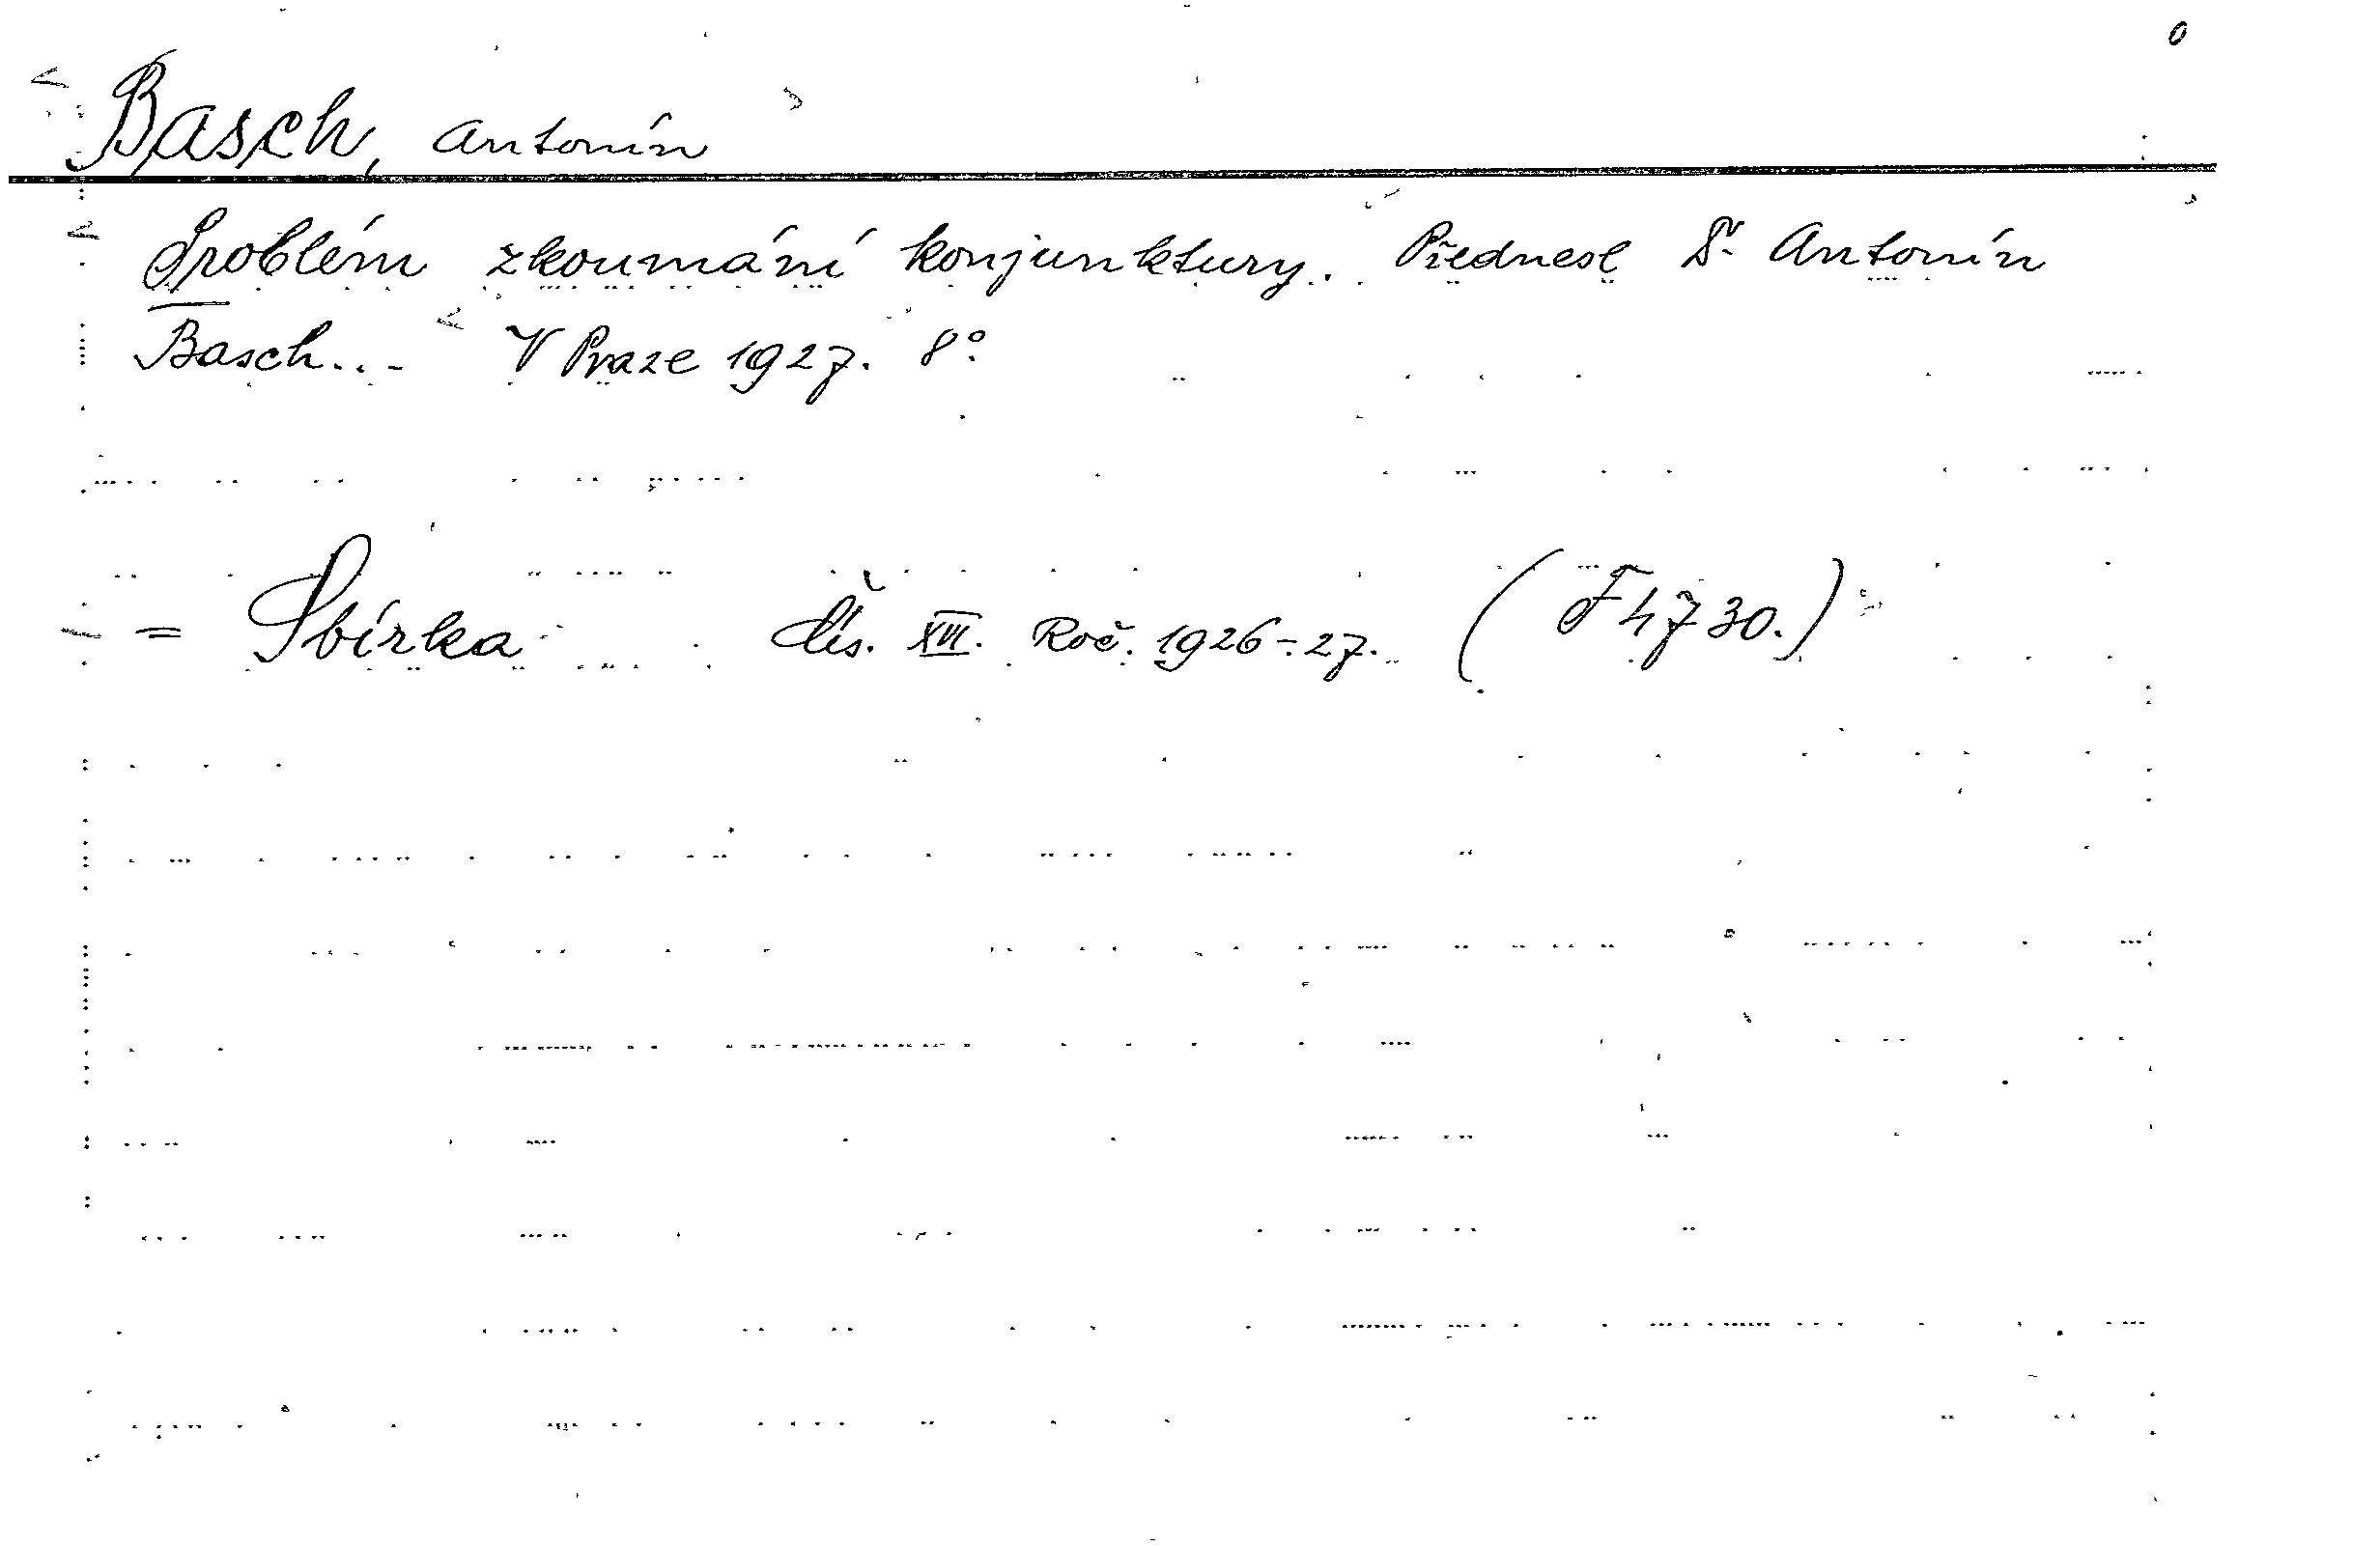 Basch, Antonín
Problém zkoumání konjunktury. Přednesl Dr. Antonín
Basch... V Praze 1927. 8°.
= Sbírka čís. XVI. Roč. 1926-27. (F 4730.)